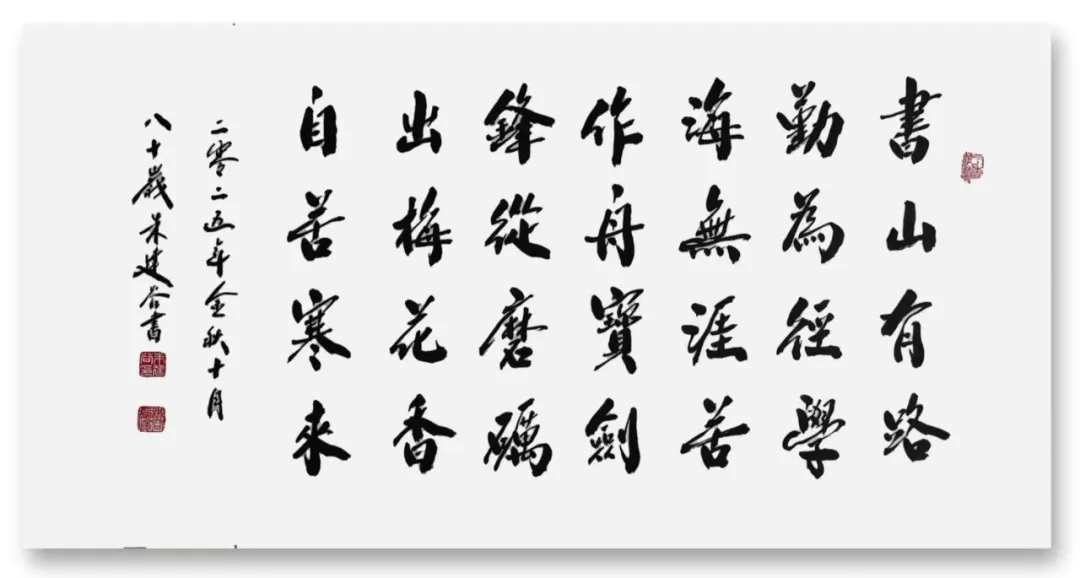 書山有路
勤為徑學
海無涯苦
作舟寶劍
鋒從磨礪
出梅花香
自苦寒來
二零二五年金秋十月
八十歲朱建谷書